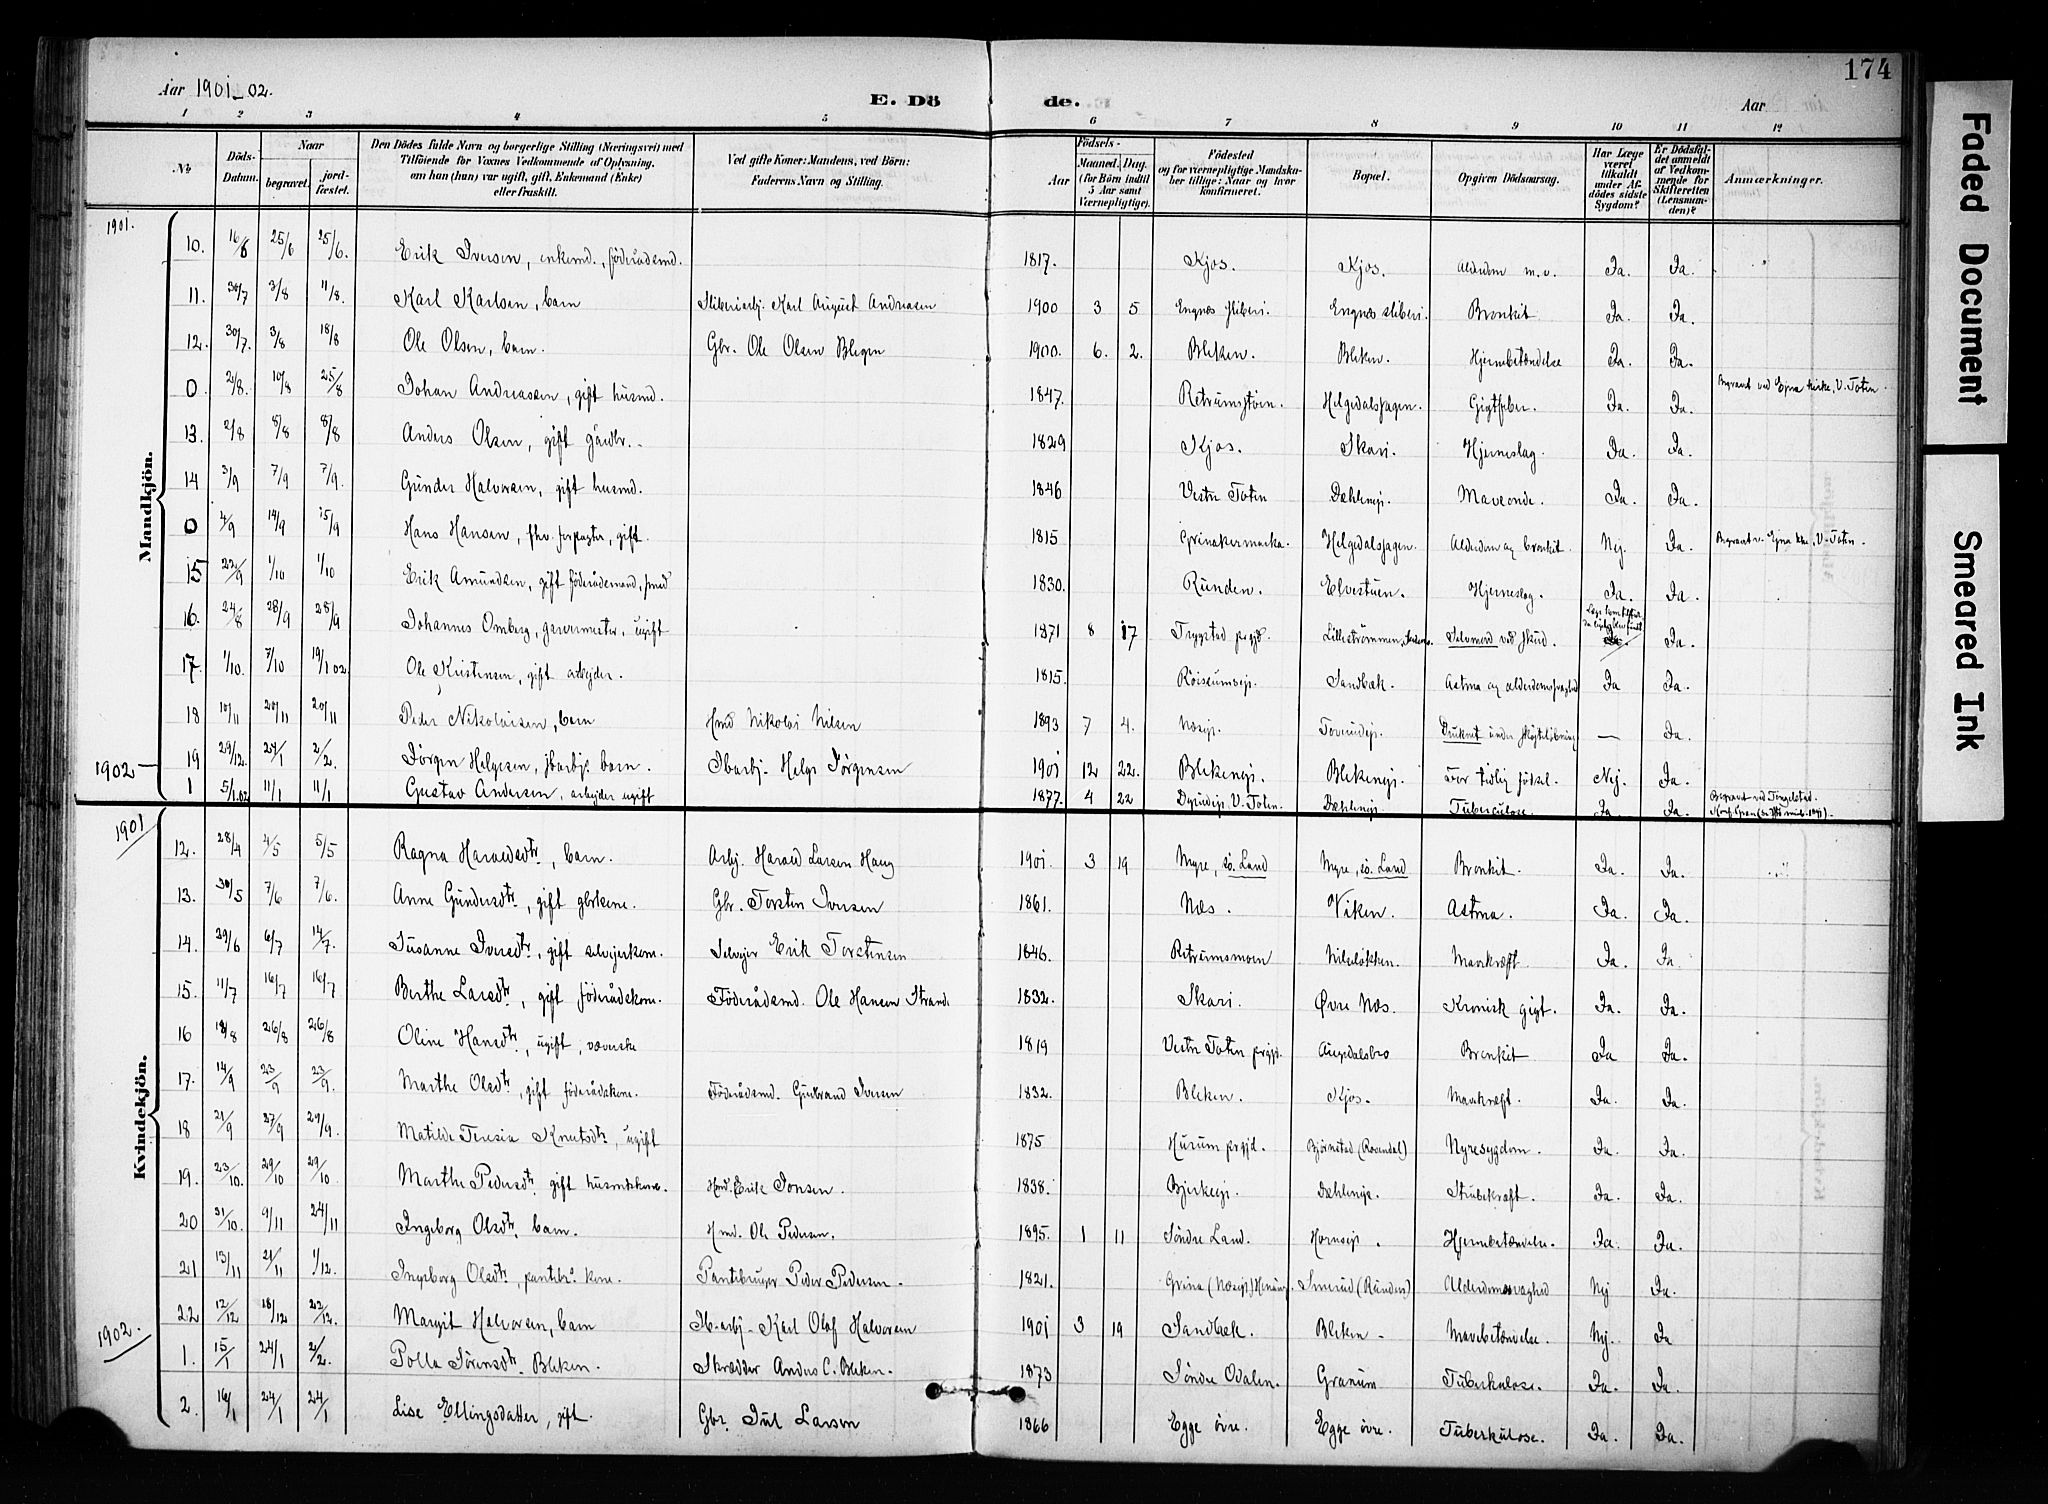 174
Aar 1901-02.
E. Döde.
Aar
1 2 3 4 5 6 7 8 9 10 11 12
No
Döds-Datum.
Naar
begravet.
jord-fæstet.
Den Dödes fulde Navn og borgerlige Stilling (Næringsvei) med Tilföiende for Voxnes Vedkommende af Oplysning, om han (hun) var ugift, gift, Enkemand (Enke) eller fraskilt.
Ved gifte Koner: Mandens, ved Börn: Faderens Navn og Stilling.
Födsels-
Aar
Maaned. Dag.
(for Börn indtil 5 Aar samt Værnepligtige).
Födested og for værnepligtige Mandskaber tillige: Naar og hvor konfirmeret.
Bopæl.
Opgiven Dödsaarsag.
Har Læge været tilkaldt under Afdödes sidste Sygdom?
Er Dödsfaldet anmeldt af Vedkommende for Skifteretten (Lensmanden)?
Anmærkninger.
Mandkjön.
1901.
10. 16/6 25/6 25/6. Erik Iversen, enkemd., föderådsmd. 1817. Kjos. Kjos. Alderdom m.v. Ja. Ja.
11. 30/7 3/8 11/8. Karl Karlsen, barn Sliberiarbj. Karl August Andreasen 1900 3 5 Engnes sliberi. Engnes sliberi. Bronkit Ja. Ja.
12. 30/7. 3/8 18/8 Ole Olsen, barn. Gbr. Ole Olsen Blegen 1900. 6. 2. Bleken. Bleken. Hjernebetændelse Ja. Ja.
0. 2/8. 10/8 25/8 Johan Andreassen, gift husmd. 1847. Retrumstøen. Helgedalshagen. Gigtfeber. Ja. Ja. Begravet ved Ejna kirke, V. Toten.
13. 2/8 8/8 8/8 Anders Olsen, gift gårdbr. 1829 Kjos. Skari. Hjerneslag. Ja. Ja.
14 3/9 7/9 7/9. Gunder Halvorsen, gift husmd. 1846 Vestre Toten Dæhlenejs. Maveonde. Ja. Ja.
0 4/9 14/9 15/9 Hans Hansen, fhv. forpagter, gift. 1815 Grinakermarka. Helgedalshagen. Alderdom og bronkit. Nej. Ja. Begravet v. Ejna kke, V. Toten.
15 22/9 1/10 1/10 Erik Amundsen, gift föderådsmand, smed 1830. Runden. Elvestuen. Hjerneslag. Ja. Ja.
16. 24/8 28/9 28/9 Johannes Omberg, garvermester, ugift 1871 8 17 Trygstad prgjd. Lilleströmmen, Selvmord ved skud. Ja.
17. 1/10. 7/10 19/1 02. Ole Kristensen, gift arbejder. 1815. Röisumsejs. Sandbæk. Astma og alderdomssvaghed Ja Ja.
18 10/11 20/11 20/11 Peder Nikolaisen, barn Hmd Nikolai Nilsen 1893 7 4. Næsejs. Toverudejs. Druknet under skøjteløbning — Ja.
19 29/12. 24/1 2/2. Jørgen Helgesen, jbarbj. barn. Jbarbj. Helge Jørgensen 1901 12 22. Blekenejs. Blekenejs. For tidlig fødsel. Nej. Ja.
1902
1 5/1.02 11/1 11/1 Gustav Andersen, arbejder ugift 1877. 4 22 V. Toten. Dæhlenejs. Tuberculose. Ja Ja. Begravet ved Tingelstad.
Kvindekjön.
1901
12. 28/4 4/5 5/5 Ragna Haraldsdtr, barn. Arbj. Harald Larsen Haug 1901 3 19 Myre, sö. Land Myre, sö. Land Bronkit. Ja. Ja.
13. 30/5 7/6 7/6. Anne Gundersdtr, gift gbrkone. Gbr. Torsten Iversen 1861. Næs. Viken. Astma. Ja. Ja.
14. 29/6 6/7 14/7. Susanne Iversdtr, gift selvejerkone. Selvejer Erik Torstensen 1846. Retrumsmoen Nilseløkken. Mavekræft. Ja. Ja.
15. 11/7 16/7 16/7 Berthe Larsdtr, gift föderådskone. Föderådsmd. Ole Hansen Strande 1832. Skari. Øvre Næs. Kronisk gigt. Ja. Ja.
16 18/8 26/8 26/8 Oline Hansdtr, ugift, væverske 1819 Vestre Toten prgjd. Augedalsbro Bronkit Ja Ja.
17. 14/9 23/9 23/9. Marthe Olsdtr, gift föderådskone. Föderådsmd. Gudbrand Iversen 1832. Bleken. Kjos. Mavekræft. Ja. Ja.
18 21/9 27/9 29/9. Matilde Teresia Knutsdtr, ugift 1875 Hurum prgjd. Björnstad (Rosendal) Nyresygdom. Ja. Ja.
19. 23/10. 29/10 29/10 Marthe Pedersdtr gift husmdskone. Hmd. Erik Jonsen. 1838. Bjerkeejs. Dæhlenejs. Strubekræft. Ja. Ja.
20 31/10. 9/11 24/11 Ingeborg Olsdtr barn. Hmd. Ole Pedersen. 1895. 1 11 Söndre Land. Hornsejs. Hjernebetændelse. Ja. Ja.
21 13/11 21/11 1/12. Ingeborg Olsdtr, pantebr. kone. Pantebruger Peder Pedersen. 1821. Grina (Næsejs) Smerud (Runden) Alderdomssvaghed Nej Ja.
22 12/12 18/12 22/12. Margit Halvorsen, barn Jb.arbj. Karl Olaf Halvorsen 1901 3 19 Sandbæk. Bleken. Mavebetændelse. Nej. Ja
1902.
1. 15/1 24/1 2/2. Polla Sörensdtr Bleken. Skrædder Anders C. Bleken. 1873 Söndre Odalen. Granum Tuberkulose. Ja. Ja.
2. 16/1 24/1 24/1 Lise Ellingsdatter, gift. Gbr. Jul Larsen 1866 Egge övre. Egge övre. Tuberkulose. Ja. Ja.
Faded Document
Smeared Ink